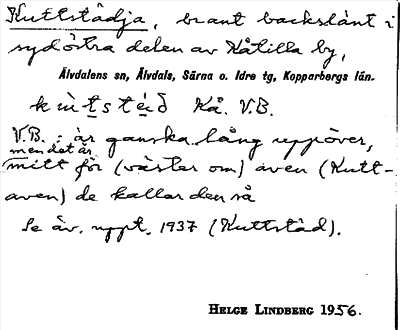 Kuttstådja, brant backslänt i
sydöstra delen av Kåtilla by,
Älvdalens sn, Älvdals, Särna o. Idre tg, Kopparbergs län.
Kå. V.B.
V.B.: är ganska lång uppöver,
men det är
mitt för (väster om) aven (Kutt-
aven) de kallar den så
Se äv. uppt. 1937 (Kuttståd).
HELGE LINDBERG 1956.